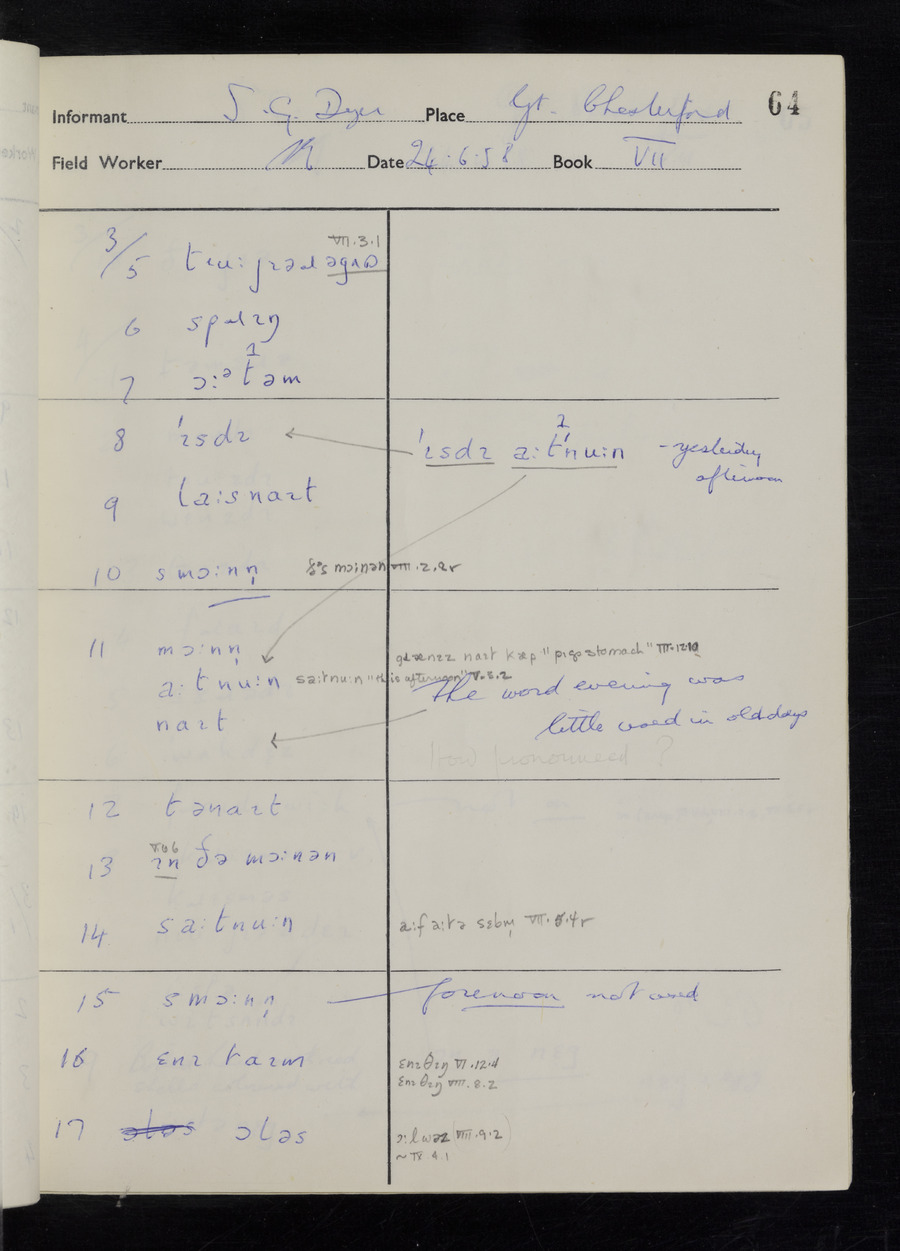 Informant S. G. Dyer Place Gt. Chesterford 64
Field Worker Date 24.6.58 Book VII
VII.3.1
3/5
6 spɹɪŋ
1
7 ɔ:ᵊtəm
8 ˈɪsdɪ
2
ˈɪsdɪ a:tˈnu:n - yesterday
afternoon
9 la:snaɪt
10 smɔ:nn̩ mɔ:nən VIII.2.9r
11 mɔ:nn̩
naɪt kæp "pig's stomach" III.12.10
a:tnu:n sa:tnu:n "this afternoon" V.8.2
The word evening was
naɪt
little used in old days
How pronounced ?
12 tənaɪt
13 ɪn ðə mɔ:nən
14 sa:tnu:n
a:f a:tə sɛbm̩ VII.5.4r
15 smɔ:nn̩ forenoon not used
16 ɛnɪ taɪm
ɛnɪθɪŋ VI.12.4
ɛnɪθɪŋ VIII.8.2
17 ɔləs
ɔ:lwəz VIII.9.2
~ IX.4.1